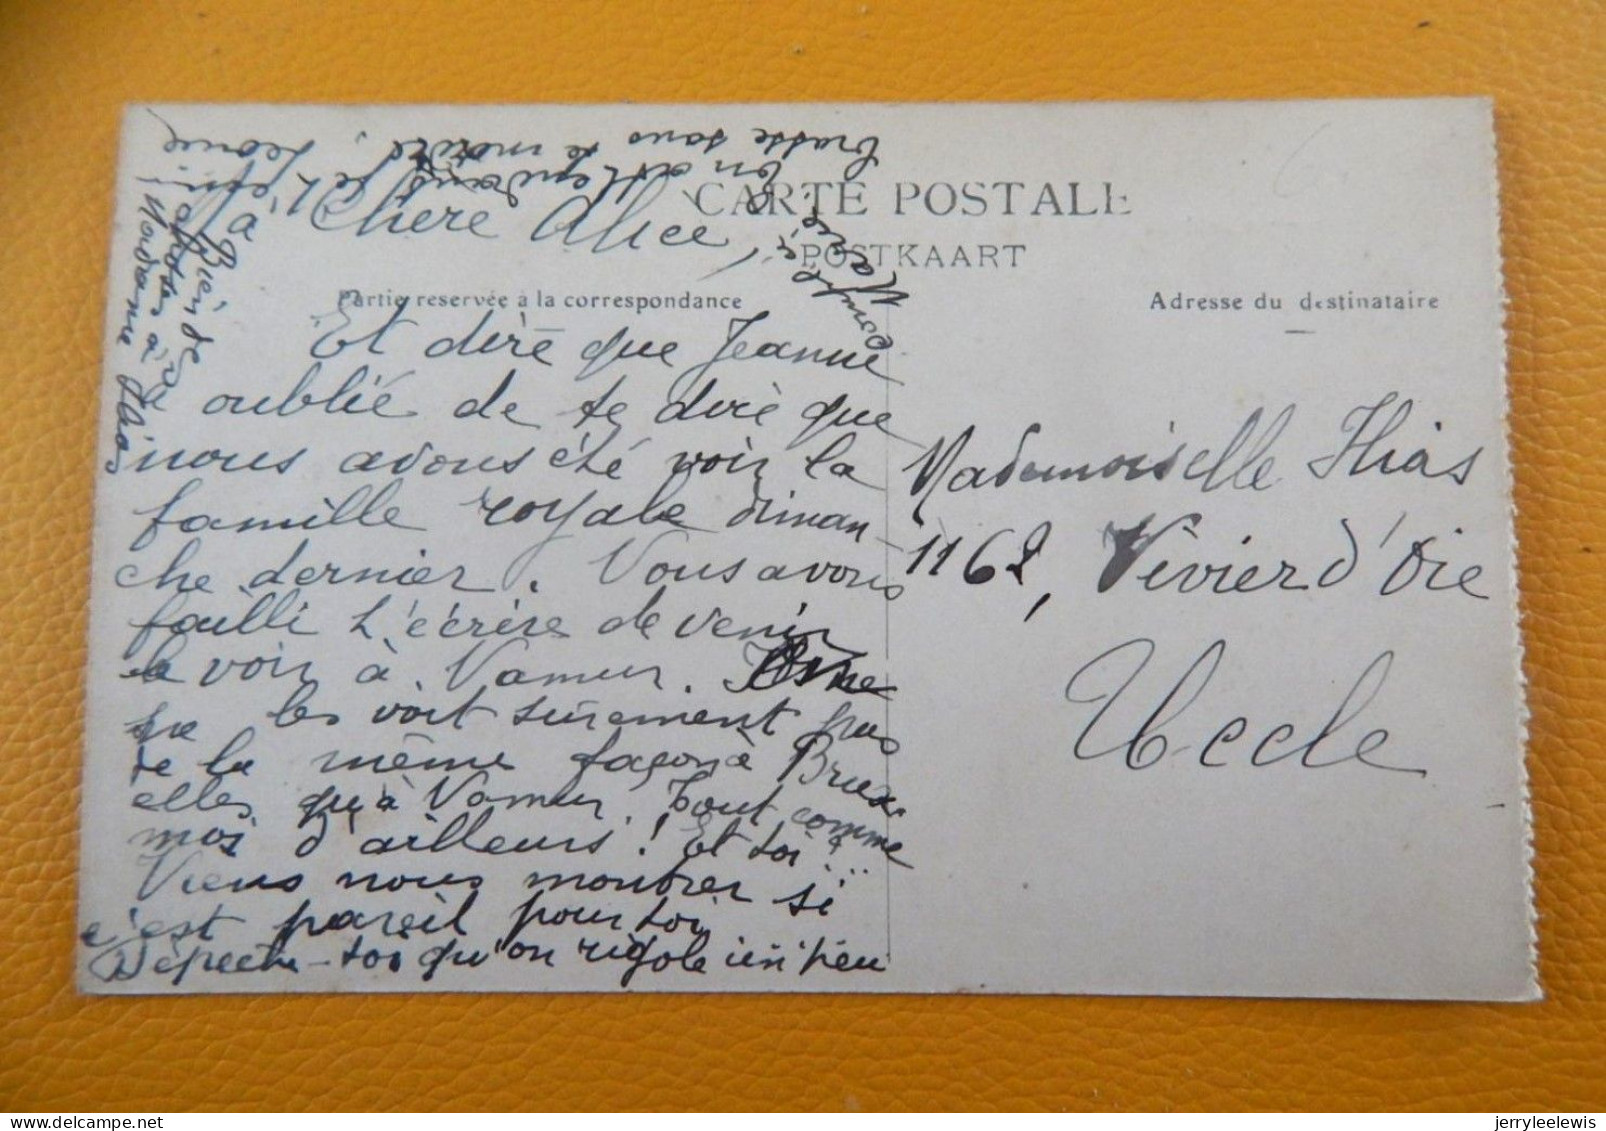 CARTE POSTALE
POSTKAART
Partie reservée à la correspondance
Adresse du destinataire
Chère Alice,
Et dire que Jeanne
a oublié de te dire que
nous avons été voir la
famille royale diman-
che dernier. Nous avons
failli t'écrire de venir
la voir à Namur.
les voit surement pas
de la même façon à Brux
elles qu'à Namur. Tout comme
moi d'ailleurs! Et toi?
Viens nous montrer si
c'est pareil pour toi
Dépèche-toi qu'on rigole un peu
En attendant je t'em
brasse sans te mordre.
Bien de
choses à
Madame
Mademoiselle Thias
1162, Vivier d'Oie
Uccle
jerryleelewis
delcampe.net